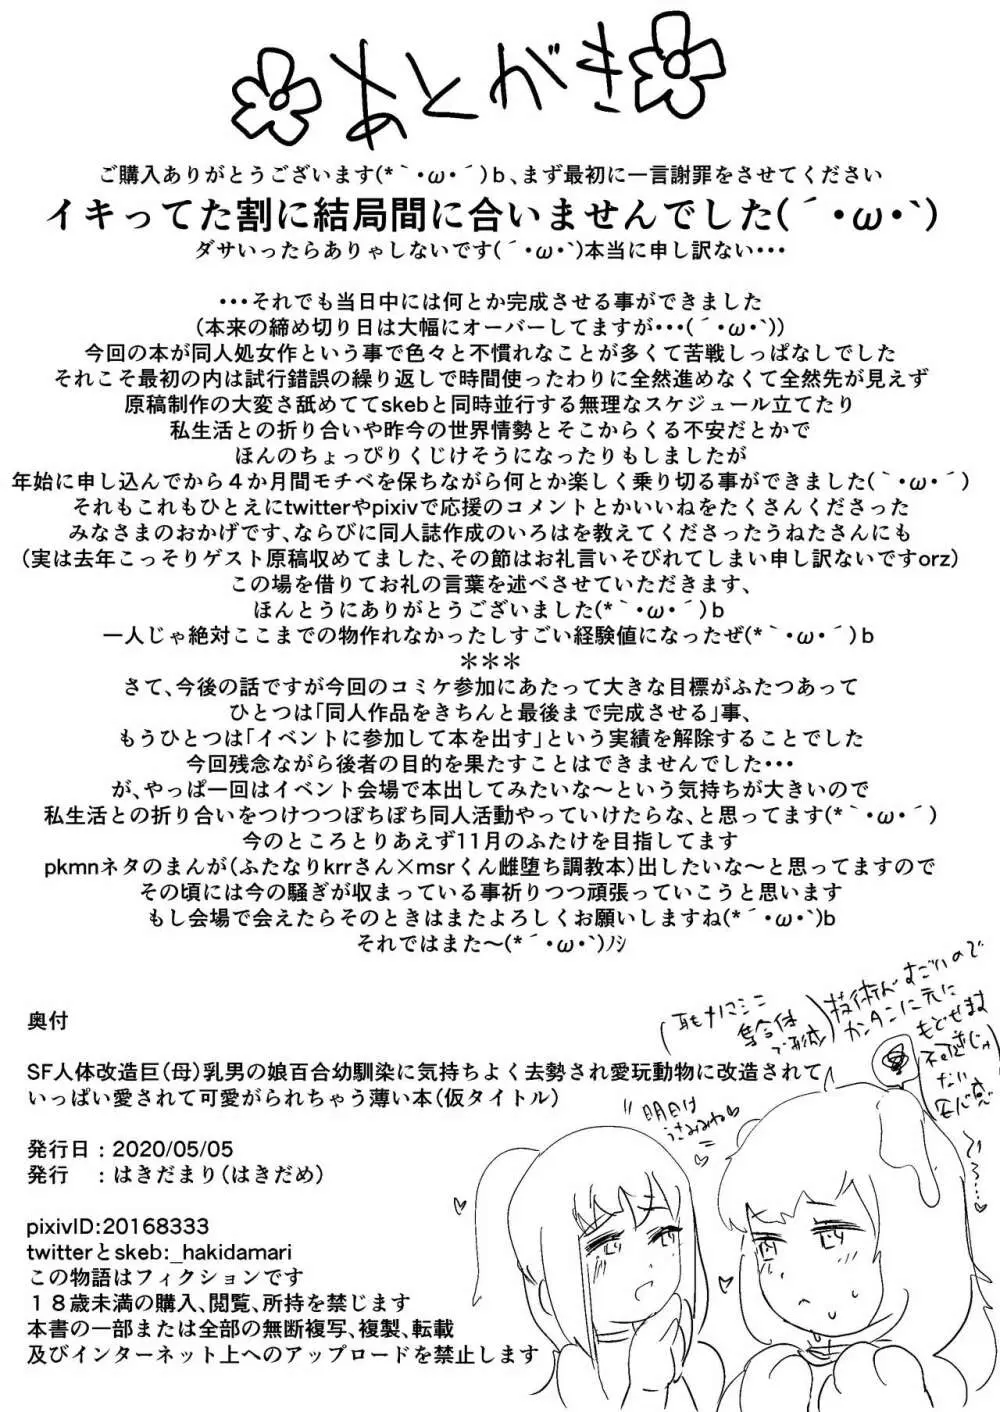 あとがき
ご購入ありがとうございます(*｀・ω・´)b、まず最初に一言謝罪をさせてください
イキってた割に結局間に合いませんでした(´・ω・`)
ダサいったらありゃしないです(´・ω・`)本当に申し訳ない・・・
・・・それでも当日中には何とか完成させる事ができました
(本来の締め切り日は大幅にオーバーしてますが・・・(´・ω・`))
今回の本が同人処女作という事で色々と不慣れなことが多くて苦戦しっぱなしでした
それこそ最初の内は試行錯誤の繰り返しで時間使ったわりに全然進めなくて全然先が見えず
原稿制作の大変さ舐めててskebと同時並行する無理なスケジュール立てたり
私生活との折り合いや昨今の世界情勢とそこからくる不安だとかで
ほんのちょっぴりくじけそうになったりもしましたが
年始に申し込んでから４か月間モチベを保ちながら何とか楽しく乗り切る事ができました(｀・ω・´)
それもこれもひとえにtwitterやpixivで応援のコメントとかいいねをたくさんくださった
みなさまのおかげです、ならびに同人誌作成のいろはを教えてくださったうねたさんにも
(実は去年こっそりゲスト原稿収めてました、その節はお礼言いそびれてしまい申し訳ないですorz)
この場を借りてお礼の言葉を述べさせていただきます、
ほんとうにありがとうございました(*｀・ω・´)b
一人じゃ絶対ここまでの物作れなかったしすごい経験値になったぜ(*｀・ω・´)b
＊＊＊
さて、今後の話ですが今回のコミケ参加にあたって大きな目標がふたつあって
ひとつは「同人作品をきちんと最後まで完成させる」事、
もうひとつは「イベントに参加して本を出す」という実績を解除することでした
今回残念ながら後者の目的を果たすことはできませんでした・・・
が、やっぱ一回はイベント会場で本出してみたいな〜という気持ちが大きいので
私生活との折り合いをつけつつぼちぼち同人活動やっていけたらな、と思ってます(*｀・ω・´)
今のところとりあえず11月のふたけを目指してます
pkmnネタのまんが(ふたなりkrrさん×msrくん雌堕ち調教本)出したいな〜と思ってますので
その頃には今の騒ぎが収まっている事祈りつつ頑張っていこうと思います
もし会場で会えたらそのときはまたよろしくお願いしますね(*´・ω・`)b
それではまた〜(*´・ω・`)ﾉｼ
奥付
SF人体改造巨(母)乳男の娘百合幼馴染に気持ちよく去勢され愛玩動物に改造されて
いっぱい愛されて可愛がられちゃう薄い本(仮タイトル)
発行日：2020/05/05
発行　：はきだまり(はきだめ)
pixivID:20168333
twitterとskeb:_hakidamari
この物語はフィクションです
１８歳未満の購入、閲覧、所持を禁じます
本書の一部または全部の無断複写、複製、転載
及びインターネット上へのアップロードを禁止します
耳もナノマシン
集合体
で形成
技術がすごいので
カンタンに元に
もどせます
不可逆じゃ
ない
安心感
明日は
うさみみね♡